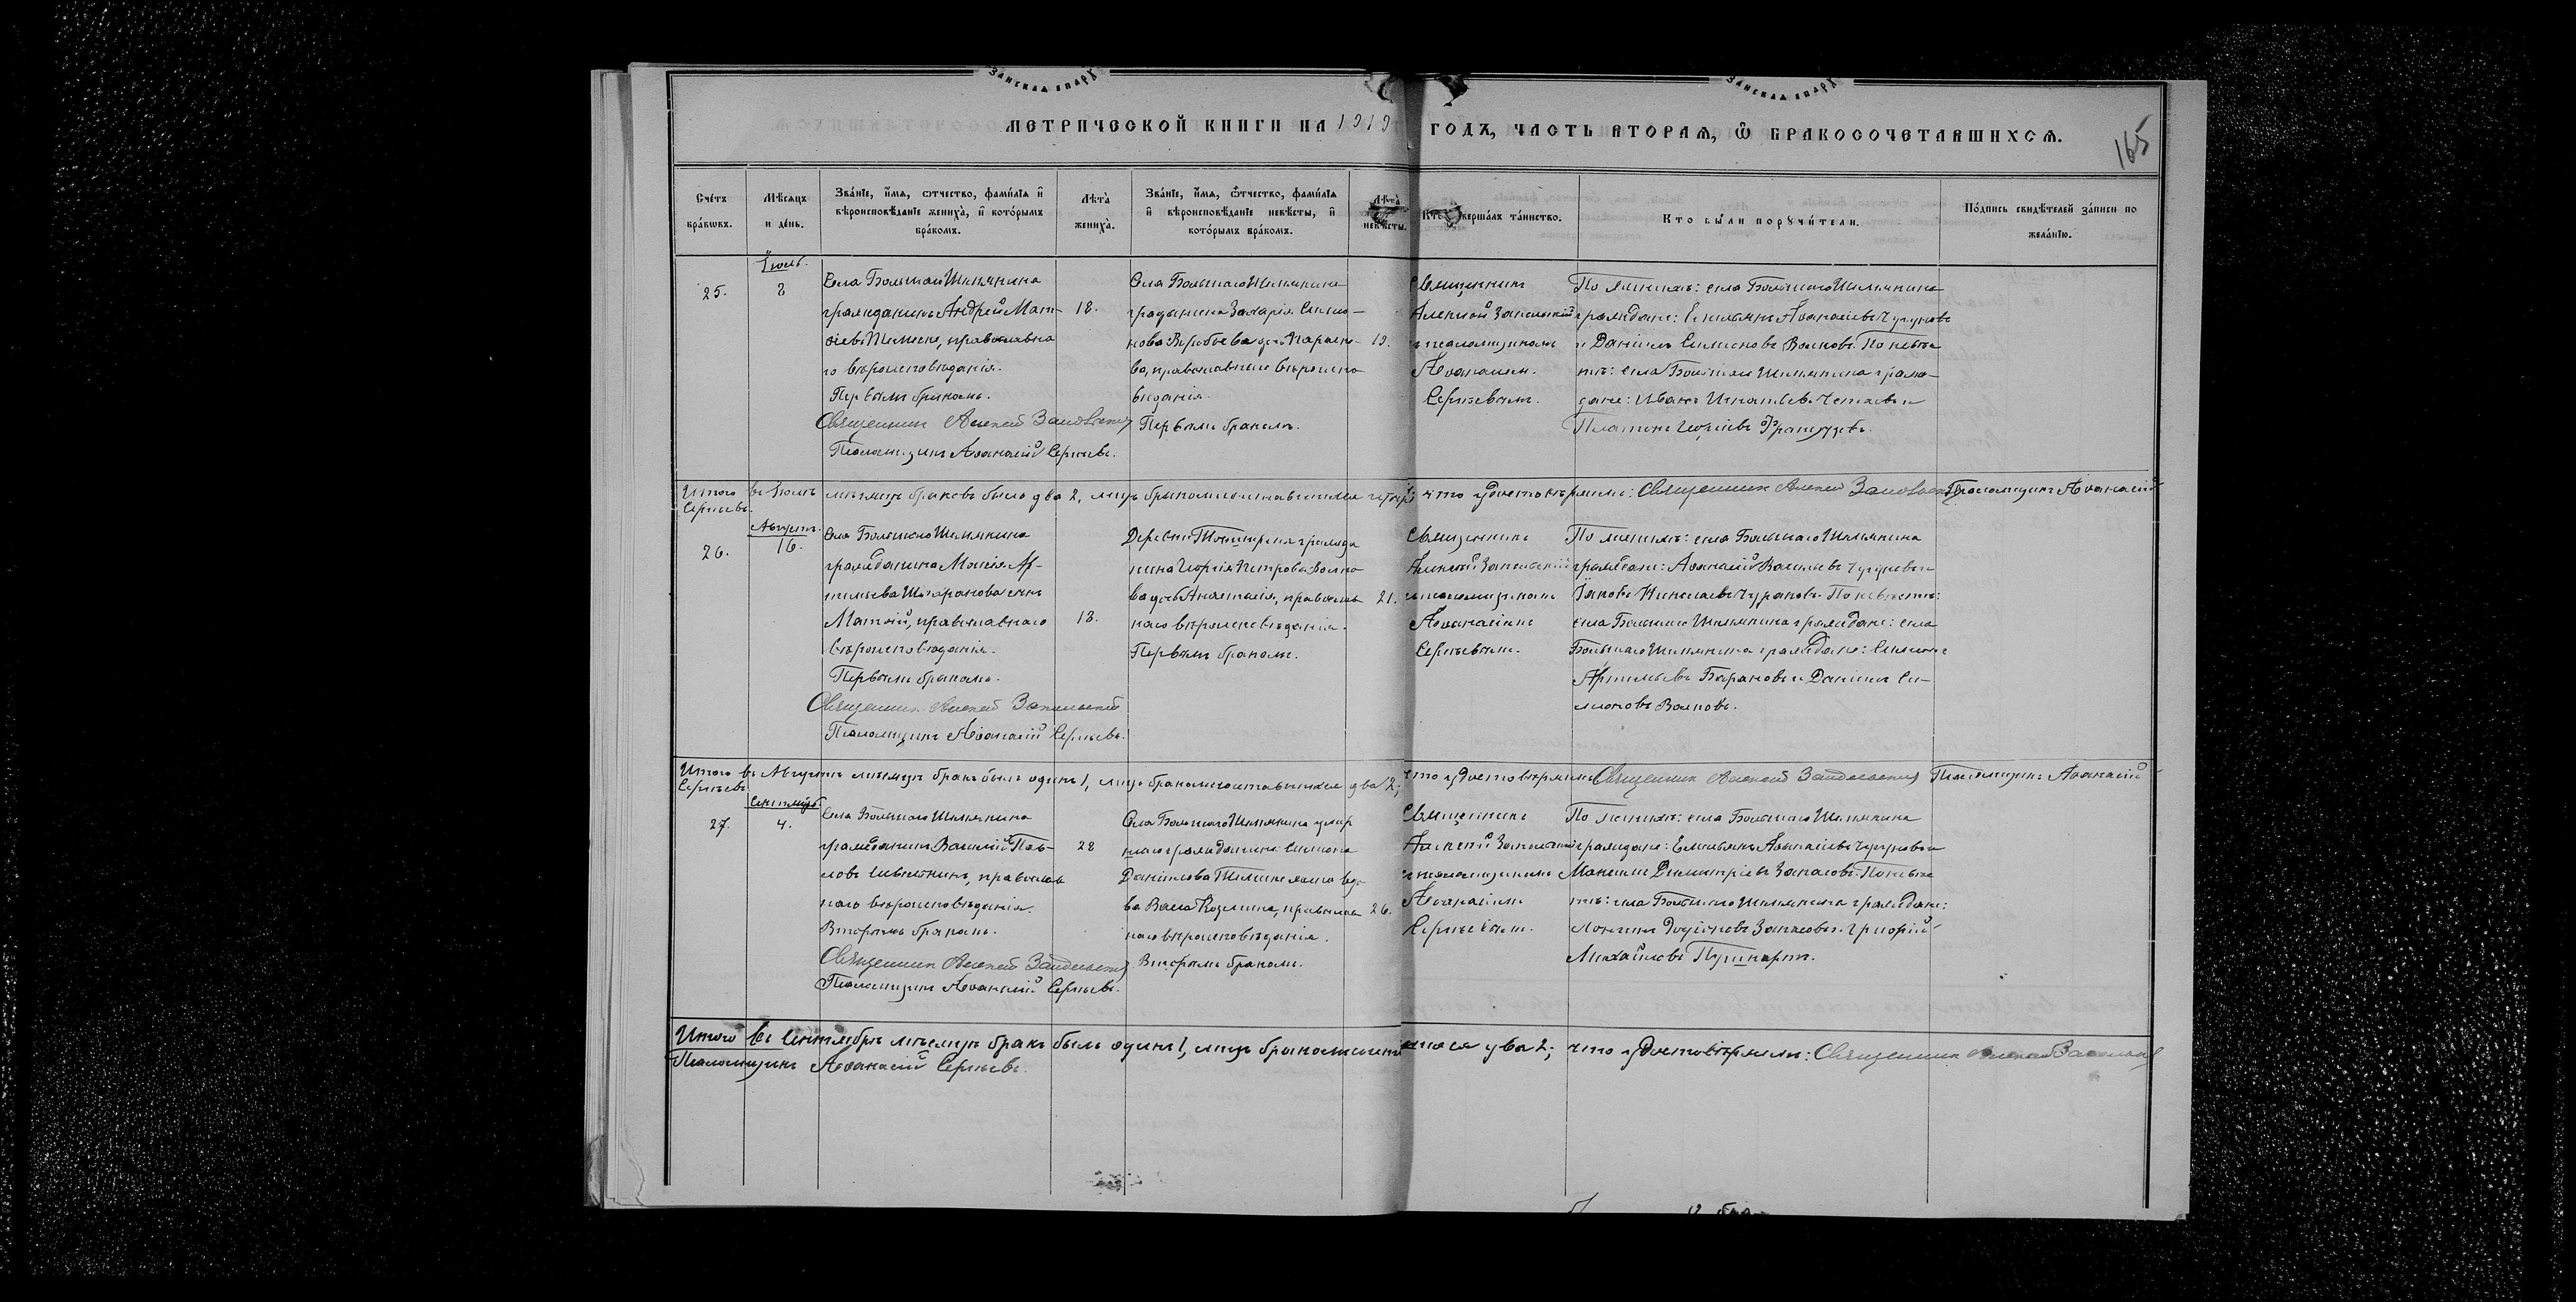 ЗАНСКАЯ ЕПАРХ
ЗАНСКАЯ ЕПАРХ
МЕТРИЧЕСКОЙ КНИГИ НА 1919 ГОДЪ, ЧАСТЬ ВТОРАЯ, Ѿ БРАКОСОЧЕТАВШИХСЯ.
165
Счётъ бра́ковъ.
Мѣ́сяцъ и де́нь.
Зва́нїе, и́мя, ѻтчество, фами́лїя и вѣроисповѣ́данїе жениха̀, и кото́рымъ бра́комъ.
Лѣта̀ жениха̀.
Зва́нїе, и́мя, ѻтчество, фами́лїя и вѣроисповѣ́данїе невѣ́сты, и кото́рымъ бра́комъ.
Лѣта̀ невѣ́сты.
Кто вершалъ та́инство.
Кто бы́ли порꙋчи́тели.
По́дпись свидѣ́телей за́писи по жела́нїю.
Іюль.
25.
8
Села Большаго Шемякина
гражданинъ Андрей Мат-
православна
го вѣроисповѣданія.
Первымъ бракомъ.
Священникъ Алексей
Псаломщикъ Аѳанасій Сергѣевъ.
18.
Села Большаго Шемякина
гражданина Захарія Симео-
нова Воробьева дочь Параске-
ва, православнаго вѣроиспо-
вѣданія.
Первымъ бракомъ.
19.
Священникъ
Алексій
и псаломщикомъ
Аѳанасіем.
Сергѣевымъ.
По женихѣ: села Большаго Шемякина
граждане: Емельянъ Аѳанасіевъ Чугуновъ
и Даніилъ Симеоновъ Волковъ. По невѣс
тѣ: села Большаго Шемякина граж-
дане: Иванъ Игнатьевъ
Платонъ Георгіевъ Французовъ.
Итого въ Іюлѣ мѣсяцѣ браковъ было два 2, лицъ бракомъ сочетавшихся четыре что удостовѣряемъ: Священникъ Алексей Псаломщикъ Аѳанасій
Сергѣевъ.
Августъ.
26.
16.
Села Большаго Шемякина
гражданина Ар-
темьева сынъ
Матѳій, православнаго
вѣроисповѣданія.
Первымъ бракомъ.
Священникъ Алексей
Псаломщикъ Аѳанасій Сергѣевъ.
18.
Деревни гражда
нина Георгія Петрова Волко
ва дочь Анастасія, православ
наго вѣроисповѣданія.
Первымъ бракомъ.
21.
Священникъ
Алексій
и псаломщикомъ
Аѳанасіемъ
Сергѣевымъ.
По женихѣ: села Большаго Шемякина
граждане: Аѳанасій Васильевъ Чугуновъ и
Іаковъ Николаевъ По невѣстѣ:
села Большаго Шемякина граждане: села
Большаго Шемякина граждане: Симеонъ
Артемьевъ Барановъ и Даніилъ Си-
меоновъ Волковъ.
Итого въ Августѣ мѣсяцѣ бракъ былъ одинъ 1, лицъ бракомъ сочетавшихся два 2; что удостовѣряемъ Священникъ Алексей Псаломщикъ Аѳанасій
Сергѣевъ.
Сентябрь.
27.
4.
Села Большаго Шемякина
гражданинъ Василій Пав-
ловъ православ
наго вѣроисповѣданія.
Вторымъ бракомъ.
Священникъ Алексей
Псаломщикъ Аѳанасій Сергѣевъ.
28
Села Большаго Шемякина умер
шаго гражданина Симеона
Даніилова вдо
ва Васса Козмина, православ
наго вѣроисповѣданія.
Вторымъ бракомъ.
26.
Священникъ
Алексій
и псаломщикомъ
Аѳанасіем
Сергѣевым.
По женихѣ: села Большаго Шемякина
граждане: Емельянъ Аѳанасіевъ Чугуновъ и
Максимъ Димитріевъ Запасовъ. По невѣс
тѣ: села Большаго Шемякина граждане:
Запасовъ и Григорій
Михайловъ Пушкаревъ.
Итого въ Сентябрѣ мѣсяцѣ бракъ былъ одинъ 1, лицъ бракомъ сочетавшихся два 2; что удостовѣряемъ: Священникъ Алексей
Псаломщикъ Аѳанасій Сергѣевъ.